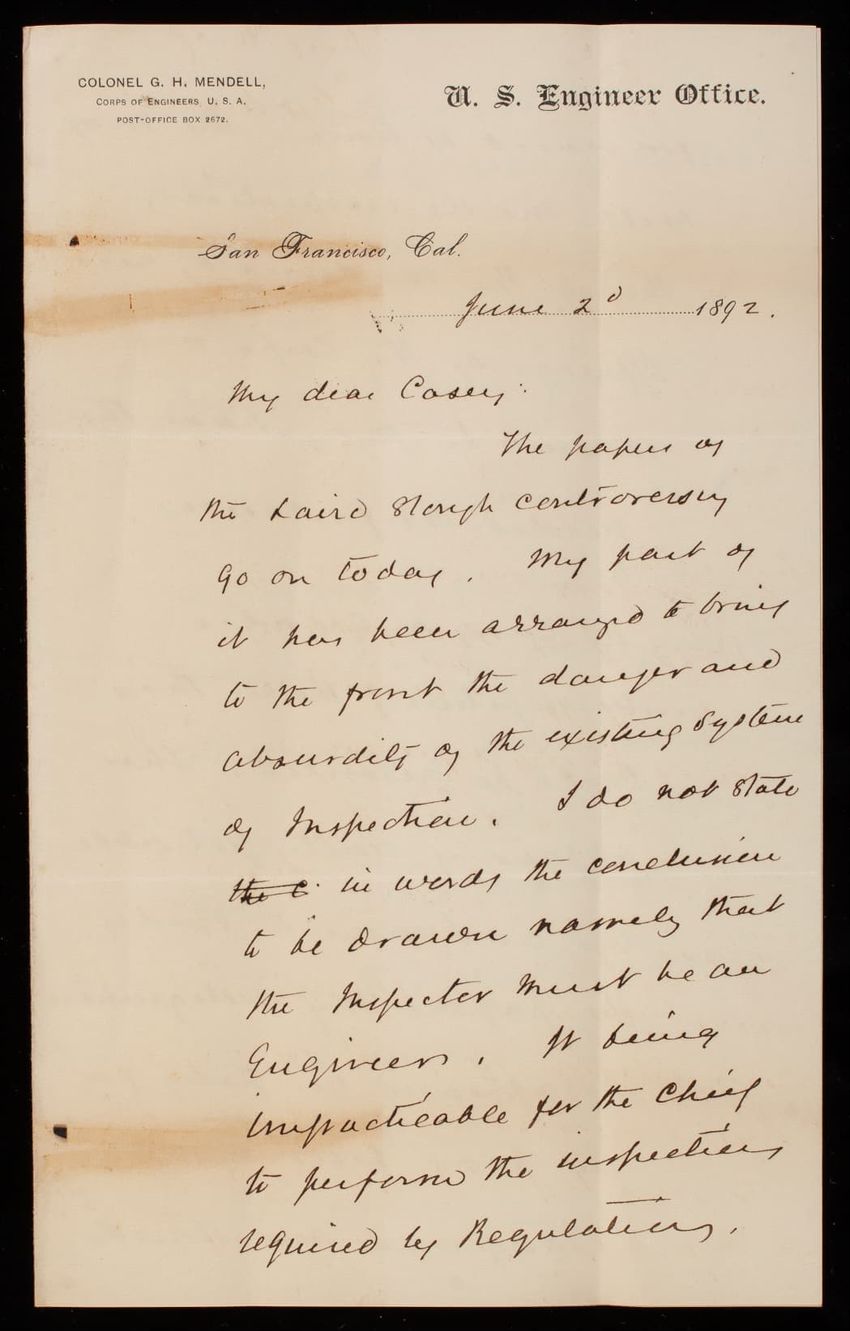 COLONEL G. H. MENDELL,
CORPS OF ENGINEERS, U. S. A.
POST-OFFICE BOX 2672.
U. S. Engineer Office.
San Francisco, Cal.
June 2d 1892.
My dear Casey:
The papers of
the Laird Slough controversy
go on today. My part of
it has been arranged to bring
to the front the danger and
absurdity of the existing System
of Inspection. I do not state
the c in words the conclusion
to be drawn namely that
the Inspector must be an
Engineer. It being
impracticable for the Chief
to perform the inspections
required by Regulations.